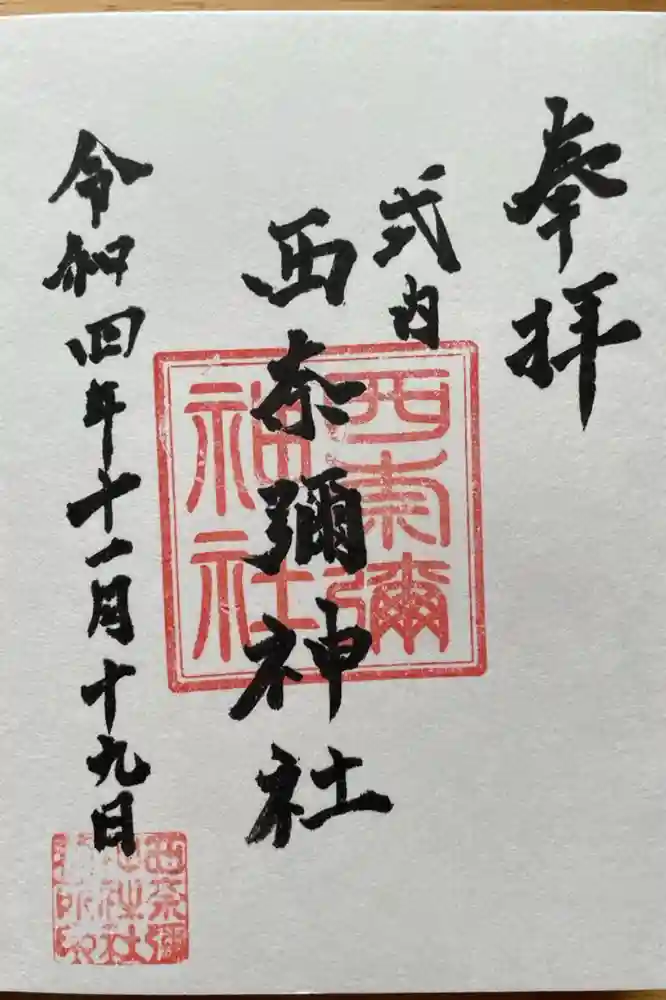 奉拝
式内
西奈彌神社
西奈彌
神社
令和四年十一月十九日
西奈彌
神社